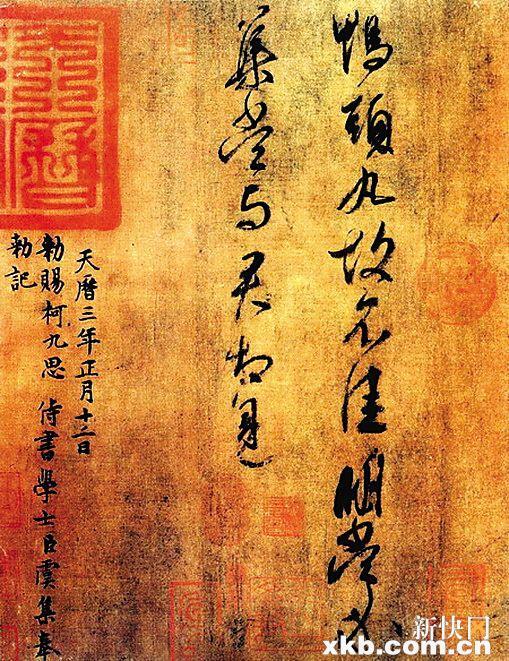 鴨頭丸故不佳明當必
集當与君相見
天曆三年正月十二日
勑賜柯九思侍書學士臣虞集奉
勑記
天曆
新快门
xkb.com.cn